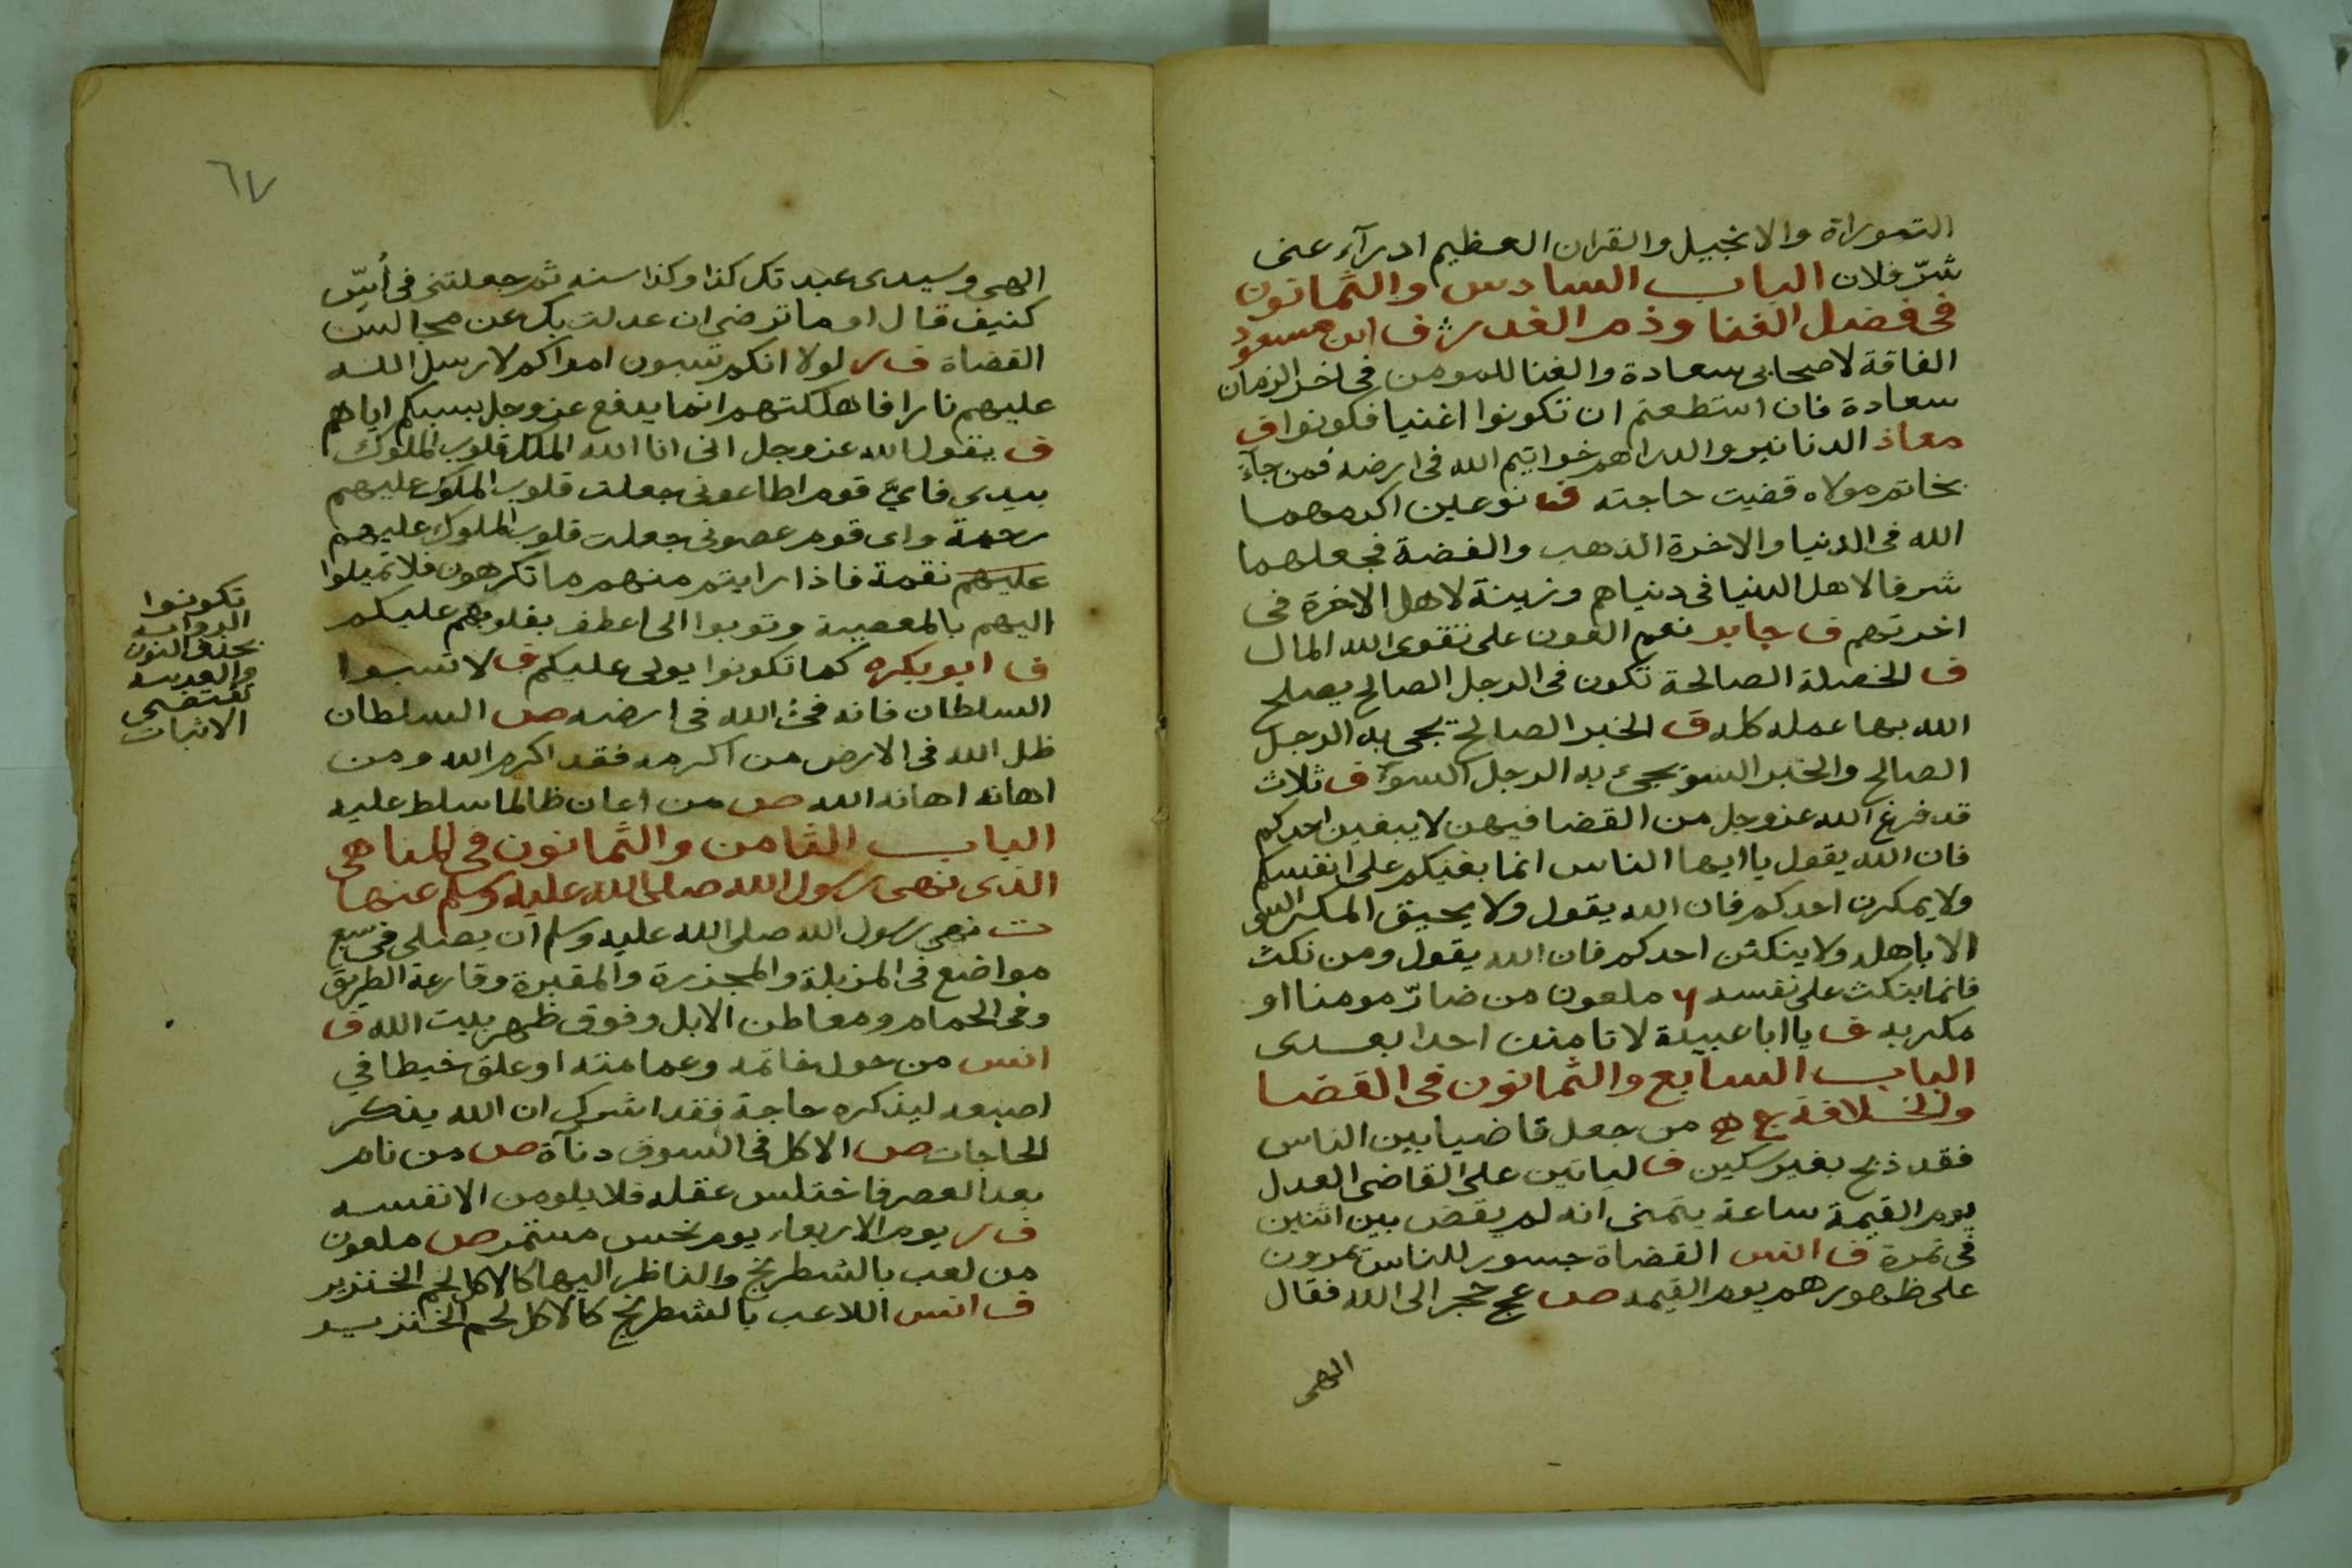 التوراة والانجيل والقران العظيم ادرآء عنى
شرّ فلان الباب السادس والثمانون
فى فضل الغنا وذم الفقر ف ابن مسعود
الفاقة لاصحابى سعادة والغنا للمومن فى اخر الزمان
سعادة فان استطعتم ان تكونوا اغنيا فكونوا ف
معاذ الدنانير والدراهم خواتيم الله فى ارضه فمن جآء
بخاتم مولاه قضيت حاجته ف نوعين اكرمهما
الله فى الدنيا والاخرة الذهب والفضة فجعلهما
شرفا لاهل الدنيا فى دنياهم وزينة لاهل الاخرة فى
اخرتهم ف جابر نعم العون على تقوى الله المال
ف الخصلة الصالحة تكون فى الرجل الصالح يصلح
الله بها عمله كله ف الخبر الصالح يجى به الرجل
الصالح والخبر السو يجىء به الرجل السوء ف ثلاث
قد فرغ الله عزوجل من القضا فيهن لا يبغين احدكم
فان الله يقول ياايها الناس انما بغيكم على انفسكم
ولا يمكرن احدكم فان الله يقول ولا يحيق المكر السى
الا باهله ولا ينكثن احدكم فان الله يقول ومن نكث
فانما ينكث على نفسه ملعون من ضارّ مومنا او
مكر به ف ياابا عبيدة لا تامنن احدا بعدى
الباب السابع والثمانون فى القضا
والخلافة ع ه من جعل قاضيا بين الناس
فقد ذبح بغير سكين ف لياتين على القاضى العدل
يوم القيمة ساعة يتمنى انه لم يقض بين اثنين
فى تمرة ف انس القضاة جسور للناس يمرون
على ظهورهم يوم القيمه ص عج حجر الى الله فقال
الهى
٦٧
الهى وسيدى عبدتك كذا وكذا سنه ثم جعلتنى فى أسّ
كنيف قال اوما ترضى ان عدلت بك عن مجالس
القضاة ف ر لولا انكم تسبون امراكم لارسل الله
عليهم نارا فاهلكتهم انما يدفع عزوجل بسبكم اياهم
ف يقول الله عزوجل انى انا الله الملك قلوب الملوك
بيدى فاىّ قوم اطاعونى جعلت قلوب الملوك عليهم
رحمة واى قوم عصونى جعلت قلوب الملوك عليهم
عليهم نقمة فاذا رايتم منهم ما تكرهون فلا تميلوا
اليهم بالمعصية وتوبوا الى اعطف بقلوبهم عليكم
ف ابو بكره كما تكونوا يولى عليكم ف لا تسبوا
السلطان فانه فئ الله فى ارضه ص السلطان
ظل الله فى الارض من اكرمه فقد اكرم الله ومن
اهانه اهانه الله ص من اعان ظالما سلط عليه
الباب الثامن والثمانون فى المناهى
الذى نهى رسول الله صلى الله عليه وسلم عنها
ت نهى رسول الله صلى الله عليه وسلم ان يصلى فى سبع
مواضع فى المزبلة والمجزرة والمقبرة وقارعة الطريق
وفى الحمام ومعاطن الابل وفوق ظهر بيت الله ف
انس من حول خاتمه وعمامته او علق خيطا في
اصبعه ليذكره حاجة فقد اشرك ان الله يذكر
الحاجات ص الاكل فى السوق دنآة ص من نام
بعد العصر فاختلس عقله فلا يلومن الا نفسه
ف ر يوم الاربعاء يوم نحس مستمر ص ملعون
من لعب بالشطرنج والناظر اليها كالاكل لحم الخنزير
ف انس اللاعب بالشطرنج كالاكل لحم الخنزيـر
تكونوا
الرواية
بحذف النون
والعربيه
تقتضى
الاثبات